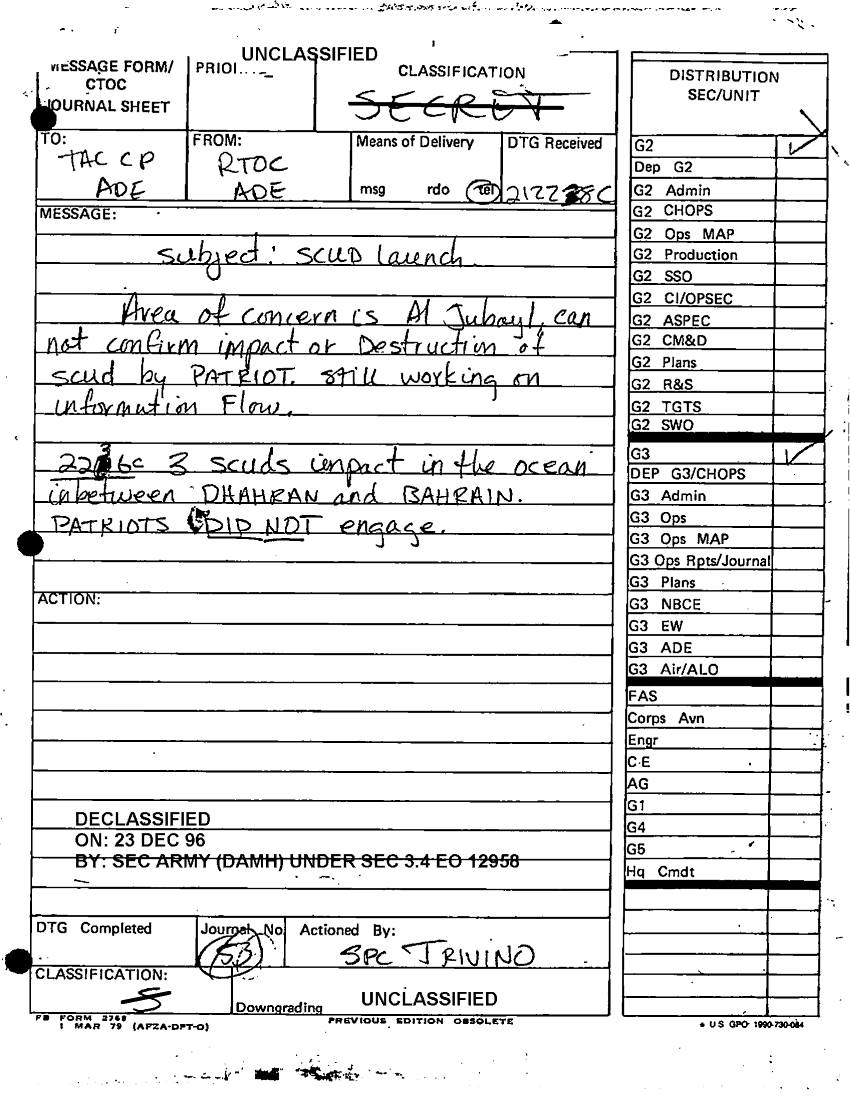 UNCLASSIFIED
MESSAGE FORM/
CTOC
JOURNAL SHEET
CLASSIFICATION
SECRET
TO:
TAC CP
ADE
FROM:
RTOC
ADE
Means of Delivery
msg rdo tel
DTG Received
MESSAGE:
Subject: SCUD Launch
Area of concern is Al Jubayl, can
not confirm impact or Destruction of
scud by PATRIOT. Still working on
information Flow.
3 scuds impact in the ocean
inbetween DHAHRAN and BAHRAIN.
PATRIOTS DID NOT engage.
ACTION:
DECLASSIFIED
ON: 23 DEC 96
BY: SEC ARMY (DAMH) UNDER SEC 3.4 EO 12958
DTG Completed
Journal No
53
Actioned By:
SPC TRIVINO
CLASSIFICATION:
S
Downgrading
UNCLASSIFIED
FB FORM 2768
1 MAR 79 (AFZA-DPT-O)
PREVIOUS EDITION OBSOLETE
DISTRIBUTION
SEC/UNIT
G2
Dep G2
G2 Admin
G2 CHOPS
G2 Ops MAP
G2 Production
G2 SSO
G2 CI/OPSEC
G2 ASPEC
G2 CM&D
G2 Plans
G2 R&S
G2 TGTS
G2 SWO
G3
DEP G3/CHOPS
G3 Admin
G3 Ops
G3 Ops MAP
G3 Ops Rpts/Journal
G3 Plans
G3 NBCE
G3 EW
G3 ADE
G3 Air/ALO
FAS
Corps Avn
Engr
C-E
AG
G1
G4
G5
Hq Cmdt
U S GPO 1990-730-084